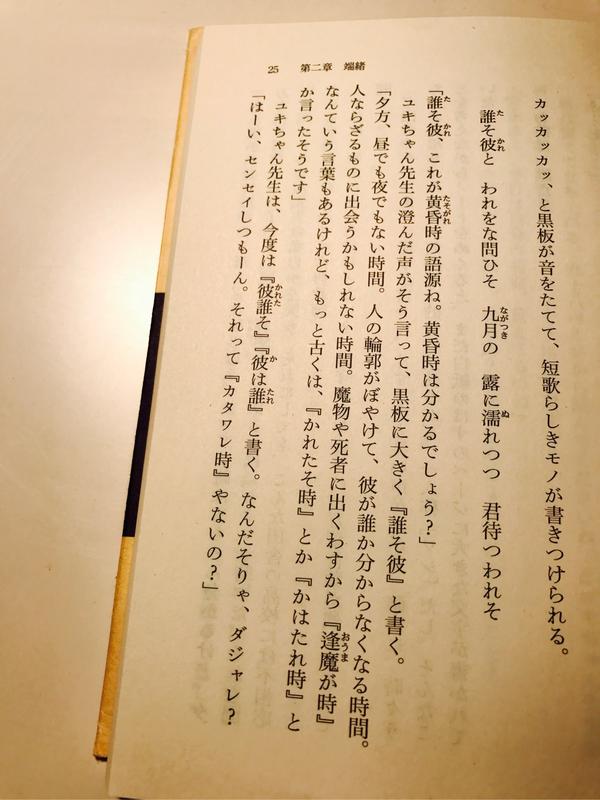 25　第二章　端緒
カッカッカッ、と黒板が音をたてて、短歌らしきモノが書きつけられる。
誰そ彼と　われをな問ひそ　九月の　露に濡れつつ　君待つわれそ
「誰そ彼、これが黄昏時の語源ね。黄昏時は分かるでしょう？」
ユキちゃん先生の澄んだ声がそう言って、黒板に大きく『誰そ彼』と書く。
「夕方、昼でも夜でもない時間。人の輪郭がぼやけて、彼が誰か分からなくなる時間。
人ならざるものに出会うかもしれない時間。魔物や死者に出くわすから『逢魔が時』
なんていう言葉もあるけれど、もっと古くは、『かれたそ時』とか『かはたれ時』と
か言ったそうです」
ユキちゃん先生は、今度は『彼誰そ』『彼は誰』と書く。なんだそりゃ、ダジャレ？
「はーい、センセイしつもーん。それって『カタワレ時』やないの？」